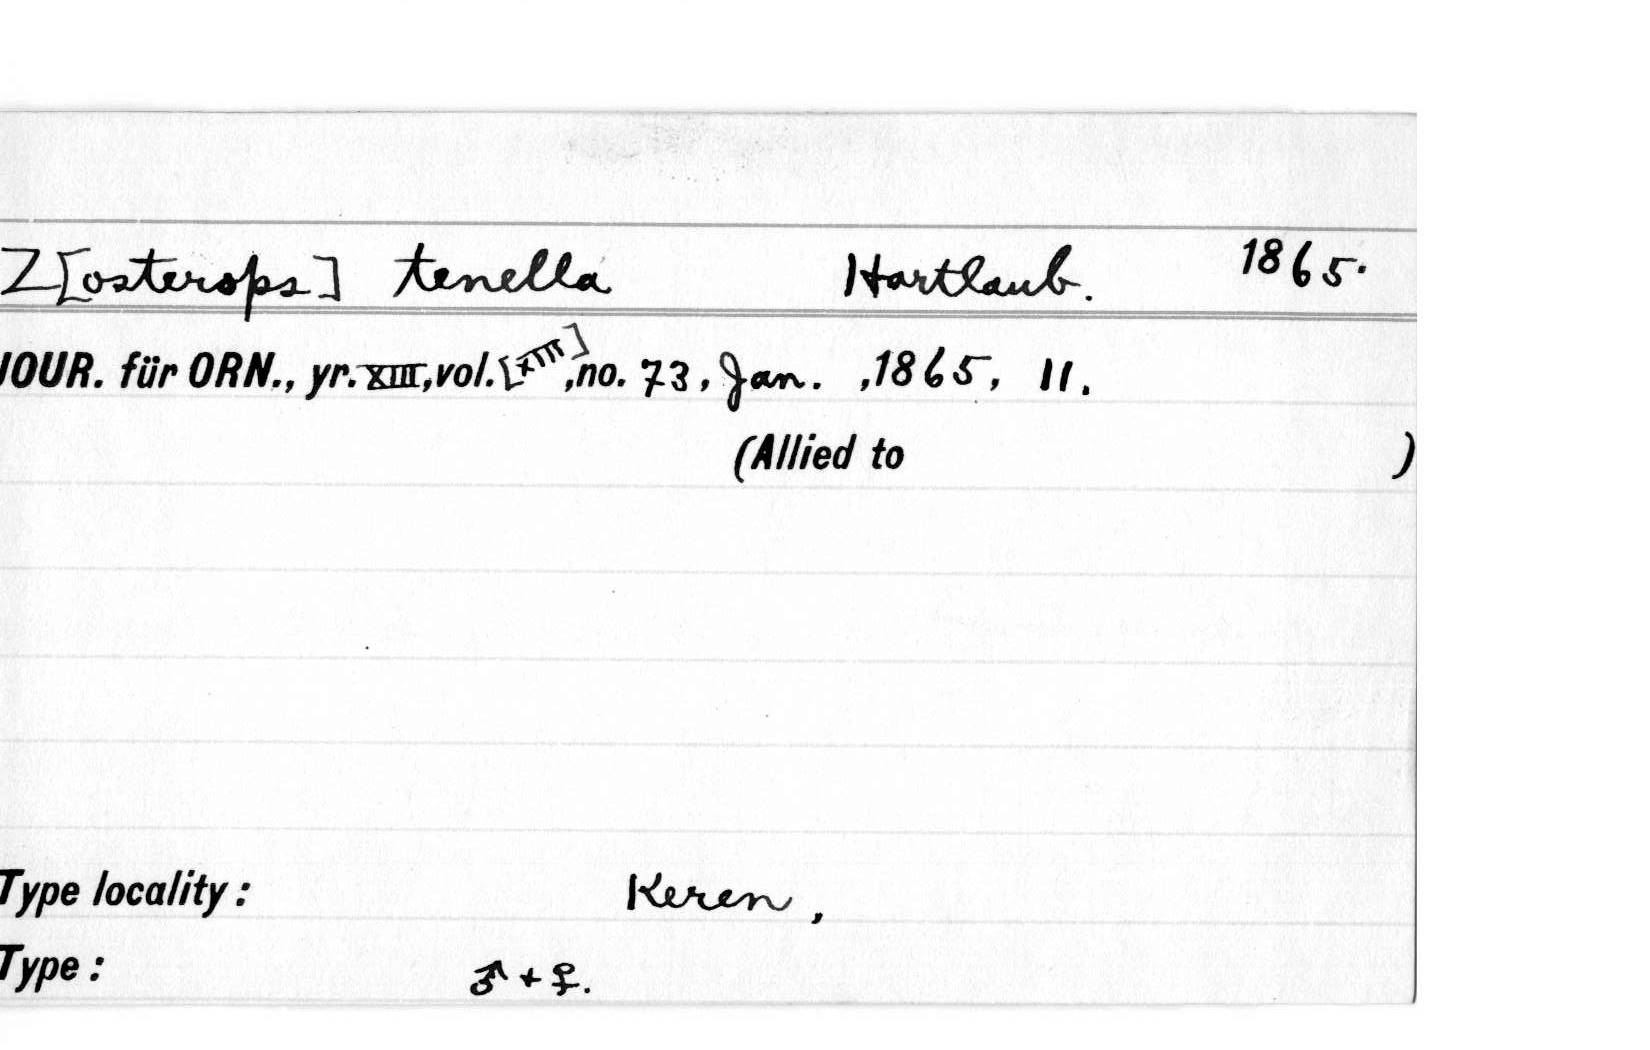 Z[osterops] tenella Hartlaub. 1865.
JOUR. für ORN., yr. XIII, vol. [XIII], no. 73, Jan. , 1865, 11.
(Allied to )
Type locality: Keren,
Type: ♂ + ♀.